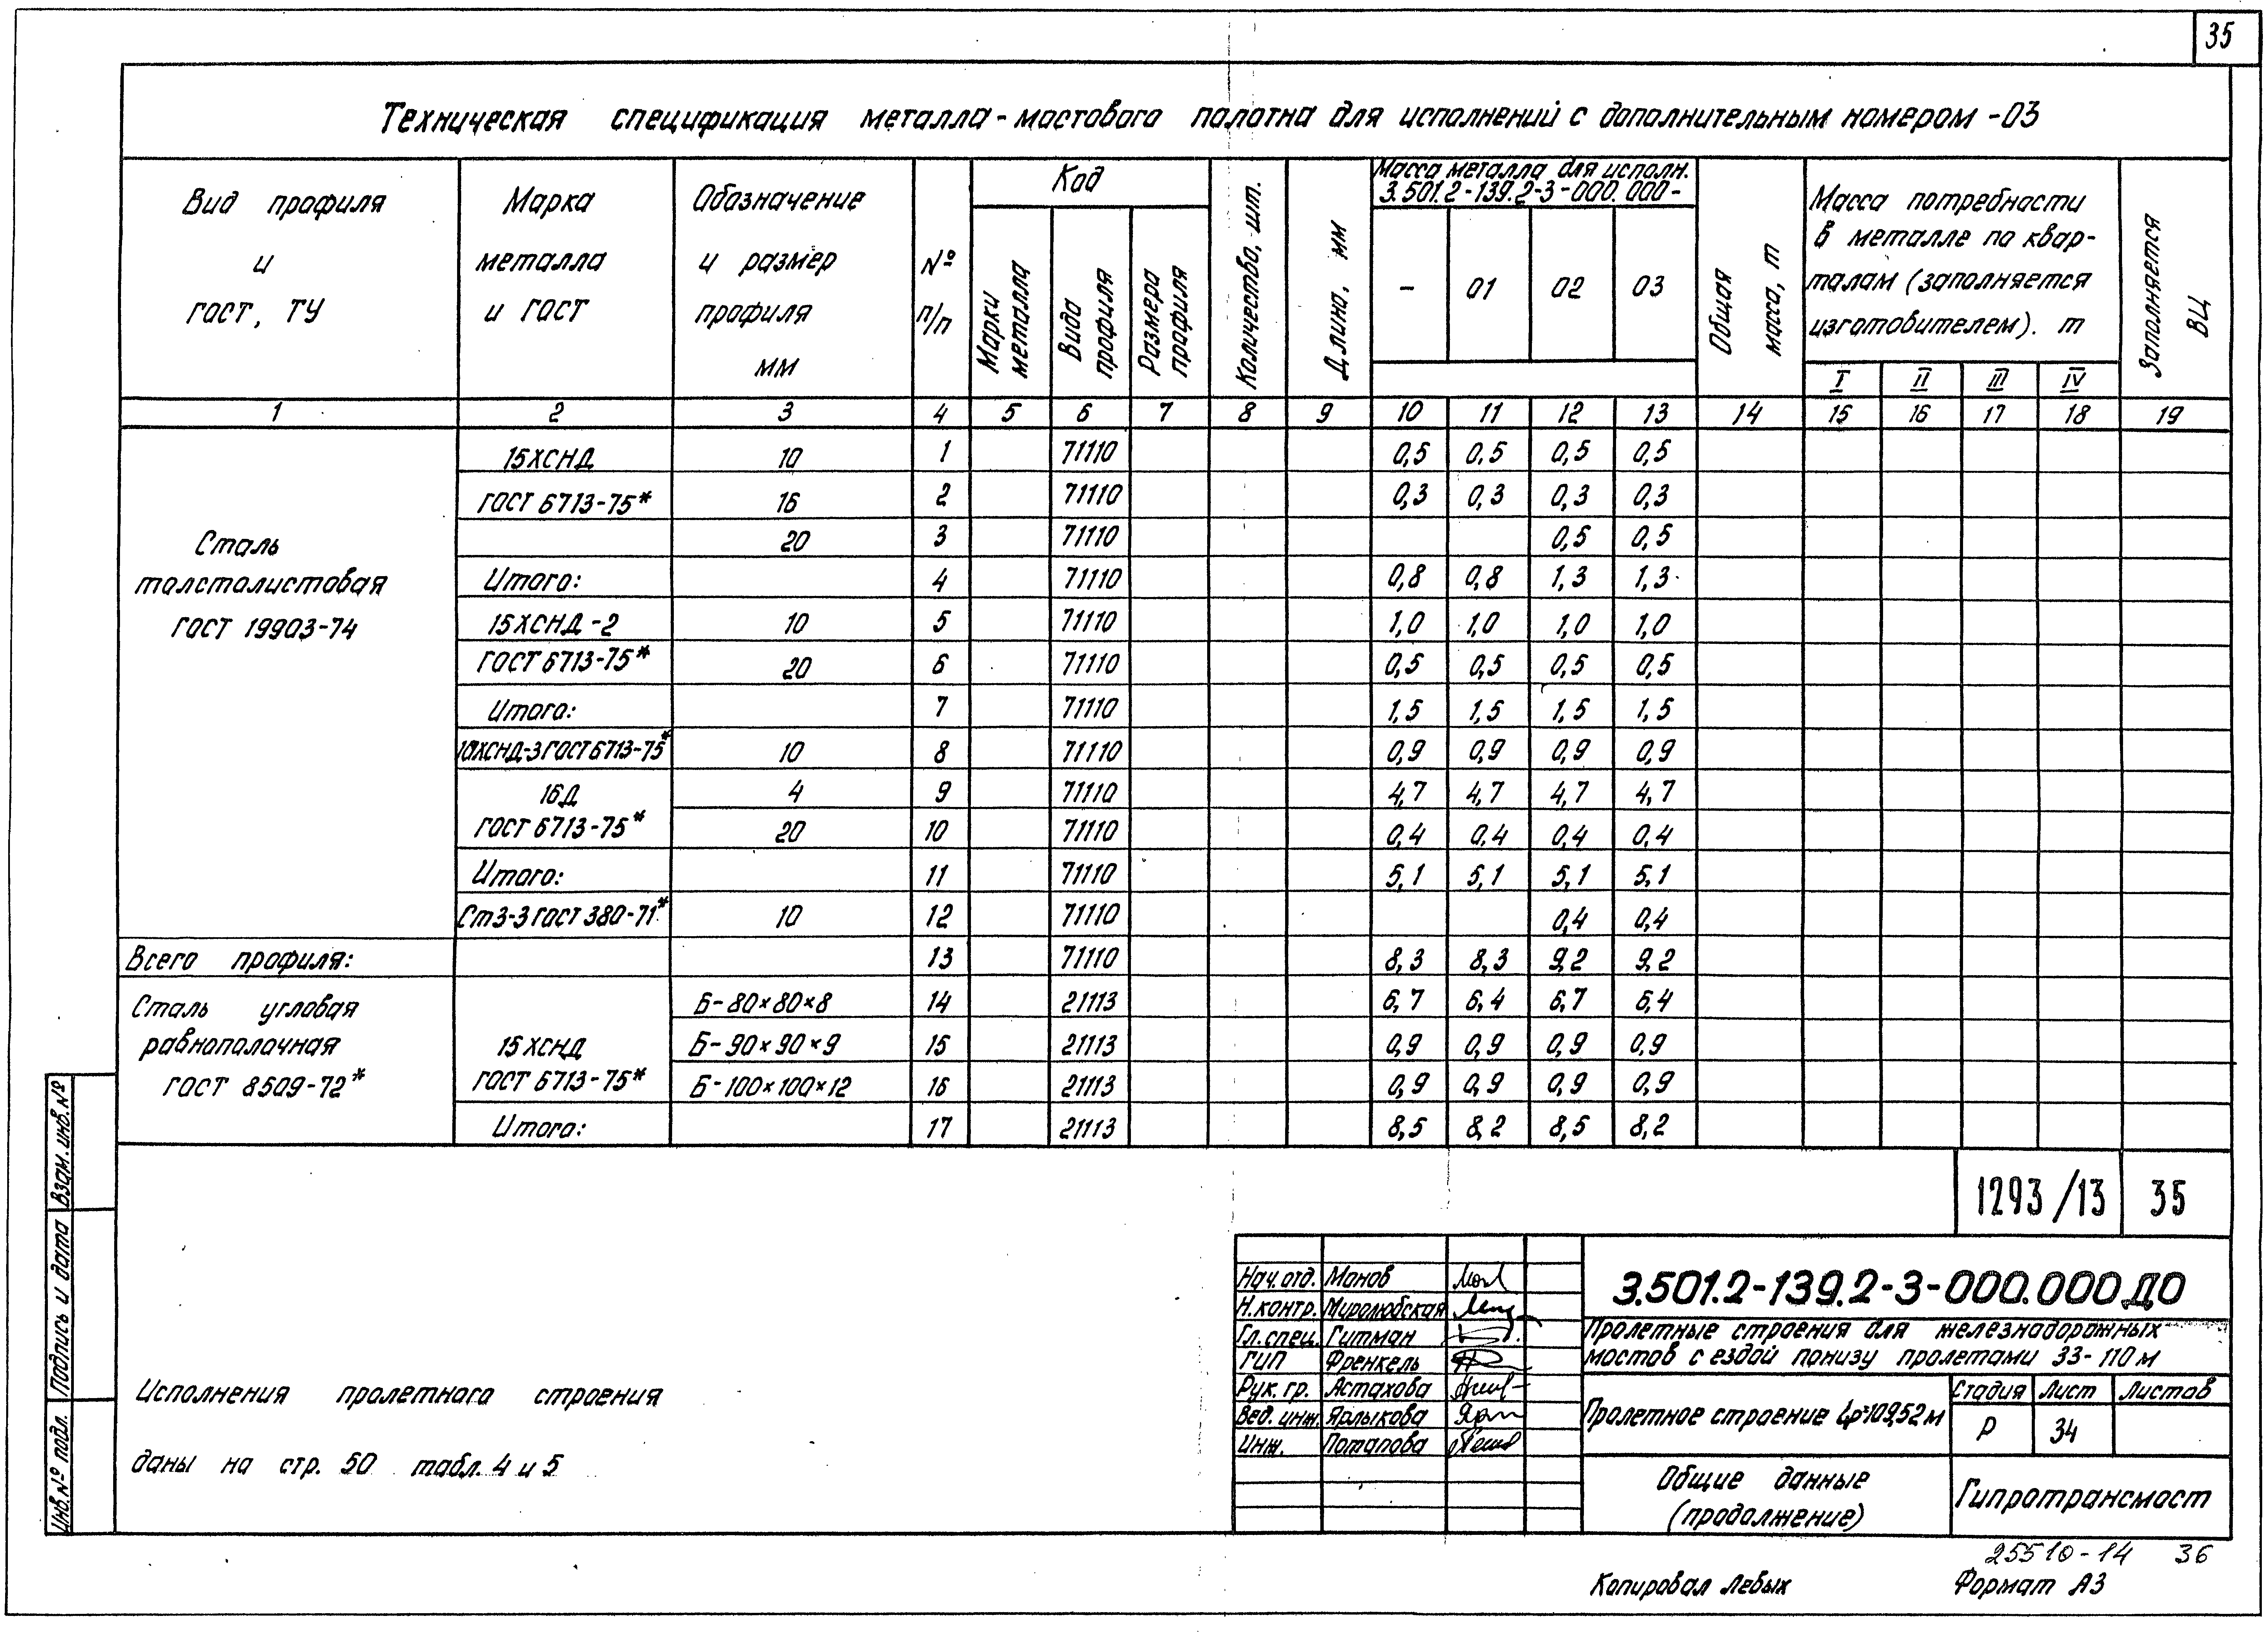 35
Техническая спецификация металла - мостового полотна для исполнений с дополнительным номером -03
Вид профиля и гост, ТУ
Марка металла и гост
Обозначение и размер профиля мм
№ п/п
Код
Марки металла
Вида профиля
Размера профиля
Количество, шт.
Длина, мм
Масса металла для исполн. 3.501.2-139.2-3-000.000-
- 01 02 03
Общая масса, т
Масса потребности в металле по кварталам (заполняется изготовителем). т
I II III IV
Заполняется ВЦ
1 2 3 4 5 6 7 8 9 10 11 12 13 14 15 16 17 18 19
Сталь
толстолистовая
ГОСТ 19903-74
15ХСНД 10 1 71110 0,5 0,5 0,5 0,5
ГОСТ 6713-75* 16 2 71110 0,3 0,3 0,3 0,3
20 3 71110 0,5 0,5
Итого: 4 71110 0,8 0,8 1,3 1,3
15ХСНД-2 10 5 71110 1,0 1,0 1,0 1,0
ГОСТ 6713-75* 20 6 71110 0,5 0,5 0,5 0,5
Итого: 7 71110 1,5 1,5 1,5 1,5
10ХСНД-3 ГОСТ 6713-75* 10 8 71110 0,9 0,9 0,9 0,9
16Д 4 9 71110 4,7 4,7 4,7 4,7
ГОСТ 6713-75* 20 10 71110 0,4 0,4 0,4 0,4
Итого: 11 71110 5,1 5,1 5,1 5,1
Ст3-3 ГОСТ 380-71* 10 12 71110 0,4 0,4
Всего профиля: 13 71110 8,3 8,3 9,2 9,2
Сталь угловая
равнополочная
ГОСТ 8509-72*
Б-80×80×8 14 21113 6,7 6,4 6,7 6,4
15ХСНД Б-90×90×9 15 21113 0,9 0,9 0,9 0,9
ГОСТ 6713-75* Б-100×100×12 16 21113 0,9 0,9 0,9 0,9
Итого: 17 21113 8,5 8,2 8,5 8,2
Взам. инв. №
Подпись и дата
Инв. № подл.
Исполнения пролетного строения
даны на стр. 50 табл. 4 и 5
1293/13 35
Нач. отд. Монов
Н. контр. Миролюбская
Гл. спец. Гитман
ГИП Френкель
Рук. гр. Астахова
Вед. инж. Ярлыкова
Инж. Потапова
3.501.2-139.2-3-000.000 ДО
Пролетные строения для железнодорожных
мостов с ездой понизу пролетами 33-110 м
Пролетное строение Lр=109,52 м
Стадия Лист Листов
Р 34
Общие данные
(продолжение)
Гипротрансмост
25510-14 36
Копировал Левых Формат А3